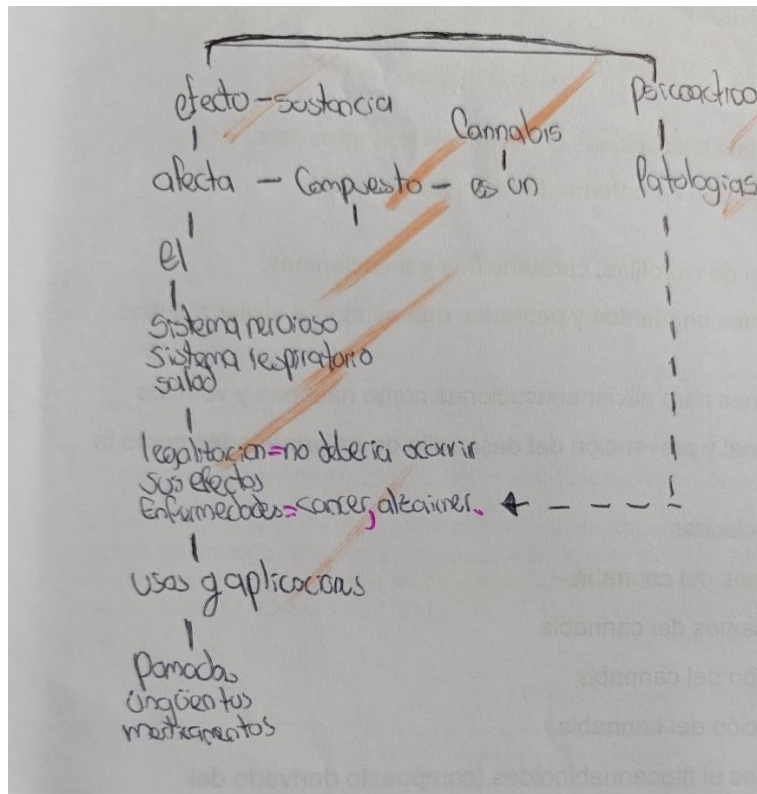 efecto - sustancia
psicoactivo
Cannabis
afecta - Compuesto - es un
Patologias
el
Sistema nervioso
Sistema respiratorio
salud
legalitacion = no deberia ocurrir
sus efectos
Enfurmedades = cancer, alzaimer.
usos y aplicocions
Pomadas
ungüentos
medicamentos